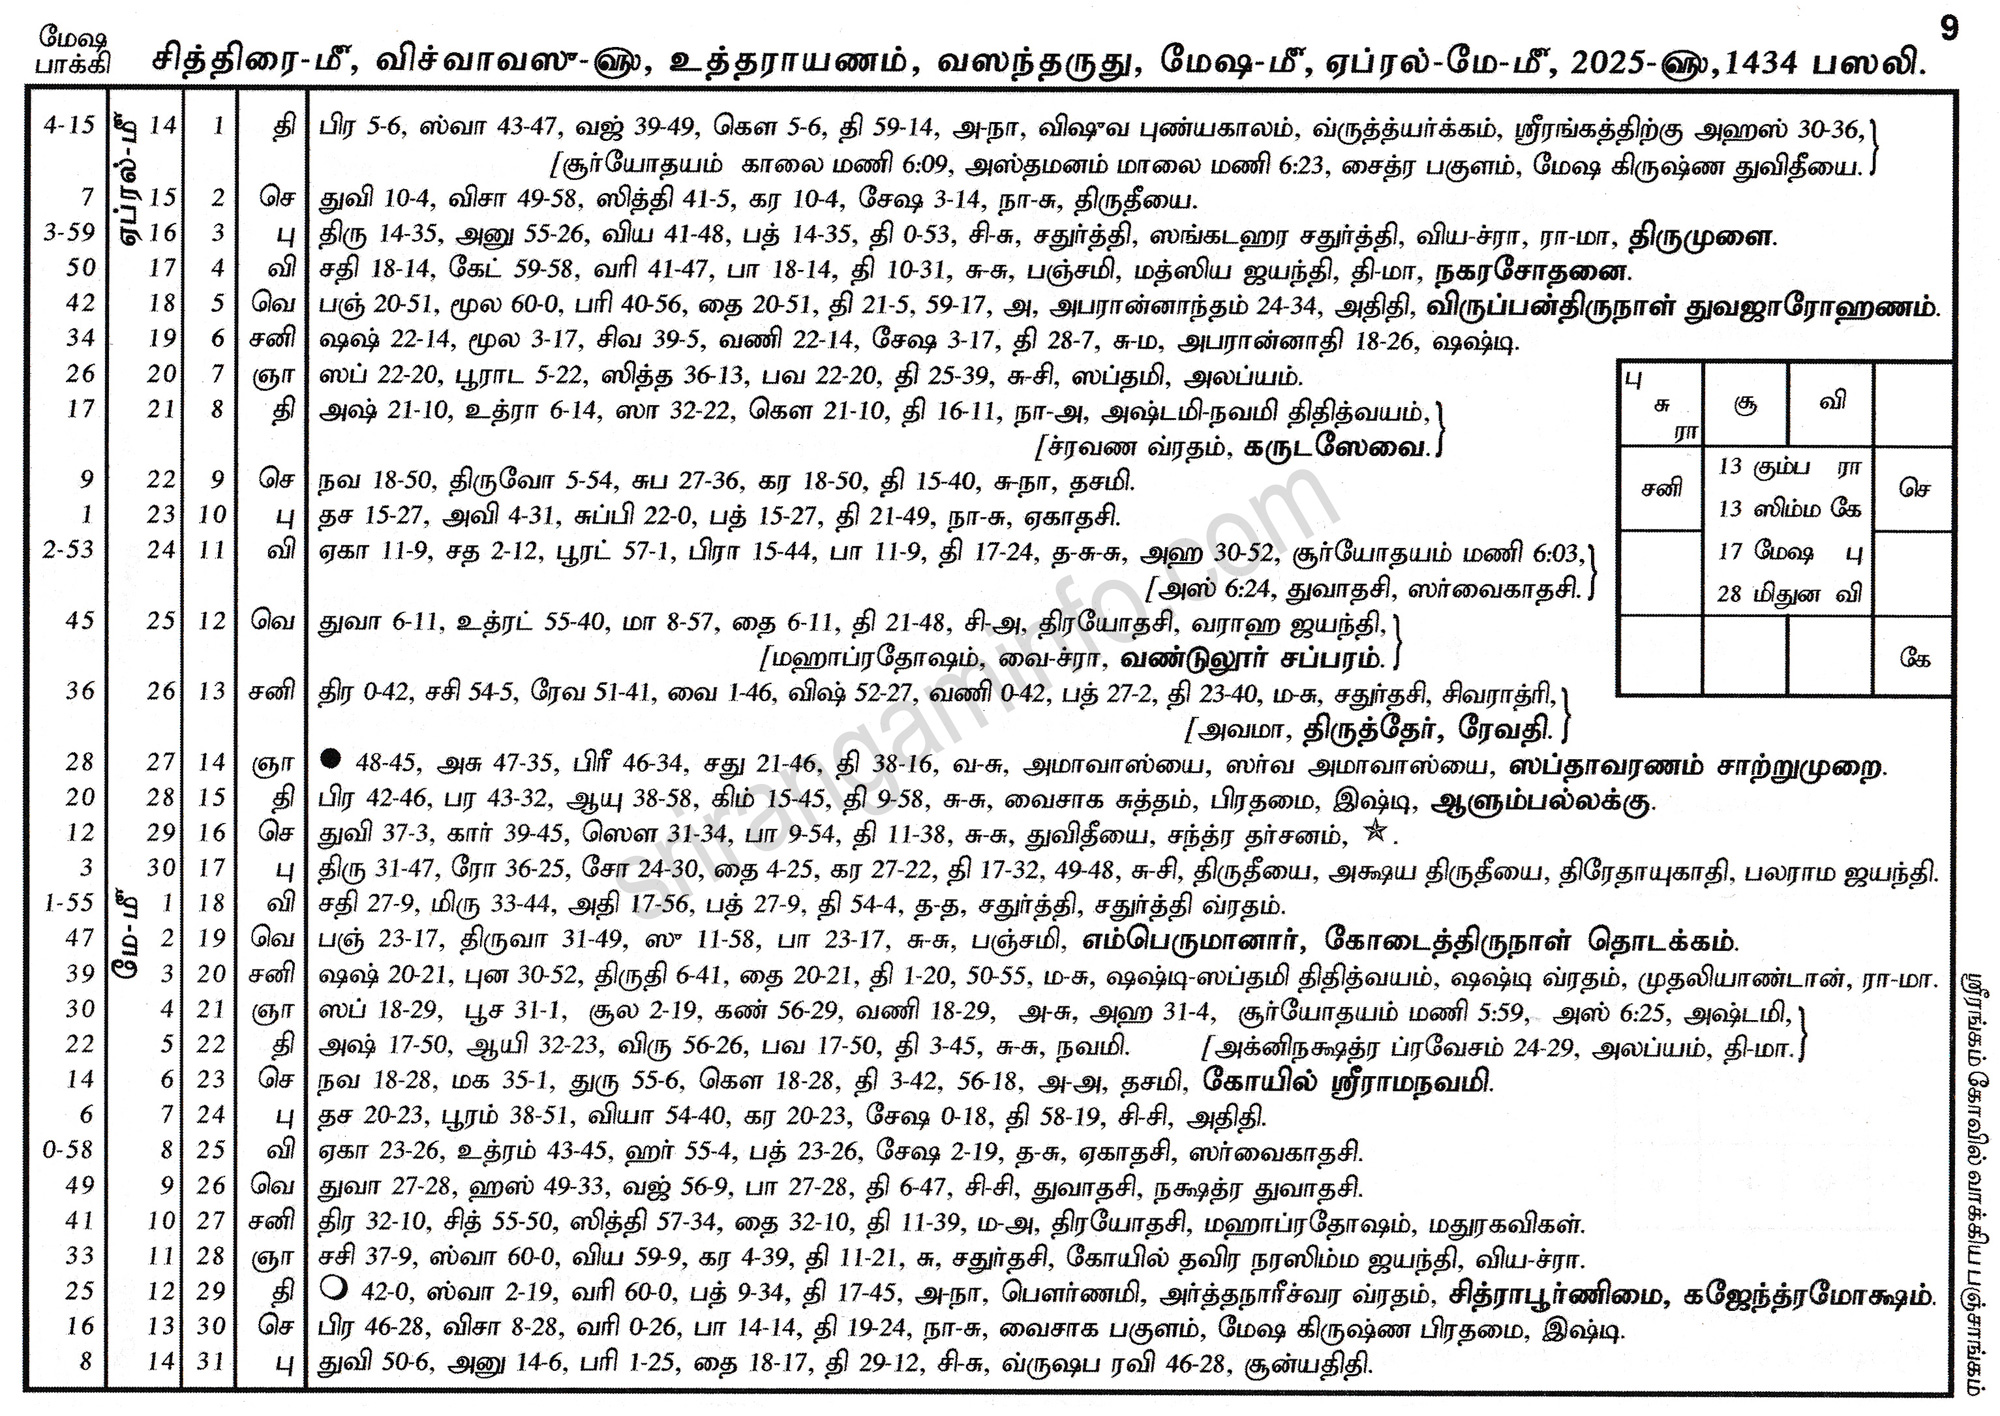 9
மேஷ பாக்கி
சித்திரை-மீ, விச்வாவஸு-௵, உத்தராயணம், வஸந்தருது, மேஷ-மீ, ஏப்ரல்-மே-மீ, 2025-௵, 1434 பஸலி.
ஏப்ரல்-மீ
4-15 14 1 தி பிர 5-6, ஸ்வா 43-47, வஜ் 39-49, கௌ 5-6, தி 59-14, அ-நா, விஷுவ புண்யகாலம், வ்ருத்த்யர்க்கம், ஸ்ரீரங்கத்திற்கு அஹஸ் 30-36,}
[சூர்யோதயம் காலை மணி 6:09, அஸ்தமனம் மாலை மணி 6:23, சைத்ர பகுளம், மேஷ கிருஷ்ண துவிதீயை.}
7 15 2 செ துவி 10-4, விசா 49-58, ஸித்தி 41-5, கர 10-4, சேஷ 3-14, நா-சு, திருதீயை.
3-59 16 3 பு திரு 14-35, அனு 55-26, விய 41-48, பத் 14-35, தி 0-53, சி-சு, சதுர்த்தி, ஸங்கடஹர சதுர்த்தி, விய-ச்ரா, ரா-மா, திருமுளை.
50 17 4 வி சதி 18-14, கேட் 59-58, வரி 41-47, பா 18-14, தி 10-31, சு-சு, பஞ்சமி, மத்ஸிய ஜயந்தி, தி-மா, நகரசோதனை.
42 18 5 வெ பஞ் 20-51, மூல 60-0, பரி 40-56, தை 20-51, தி 21-5, 59-17, அ, அபரான்னாந்தம் 24-34, அதிதி, விருப்பன்திருநாள் துவஜாரோஹணம்.
34 19 6 சனி ஷஷ் 22-14, மூல 3-17, சிவ 39-5, வணி 22-14, சேஷ 3-17, தி 28-7, சு-ம, அபரான்னாதி 18-26, ஷஷ்டி.
26 20 7 ஞா ஸப் 22-20, பூராட 5-22, ஸித்த 36-13, பவ 22-20, தி 25-39, சு-சி, ஸப்தமி, அலப்யம்.
17 21 8 தி அஷ் 21-10, உத்ரா 6-14, ஸா 32-22, கௌ 21-10, தி 16-11, நா-அ, அஷ்டமி-நவமி திதித்வயம்,}
[ச்ரவண வ்ரதம், கருடஸேவை.}
9 22 9 செ நவ 18-50, திருவோ 5-54, சுப 27-36, கர 18-50, தி 15-40, சு-நா, தசமி.
1 23 10 பு தச 15-27, அவி 4-31, சுப்பி 22-0, பத் 15-27, தி 21-49, நா-சு, ஏகாதசி.
2-53 24 11 வி ஏகா 11-9, சத 2-12, பூரட் 57-1, பிரா 15-44, பா 11-9, தி 17-24, த-சு-சு, அஹ 30-52, சூர்யோதயம் மணி 6:03,}
[அஸ் 6:24, துவாதசி, ஸர்வைகாதசி.}
45 25 12 வெ துவா 6-11, உத்ரட் 55-40, மா 8-57, தை 6-11, தி 21-48, சி-அ, திரயோதசி, வராஹ ஜயந்தி,}
[மஹாப்ரதோஷம், வை-ச்ரா, வண்டுலூர் சப்பரம்.}
36 26 13 சனி திர 0-42, சசி 54-5, ரேவ 51-41, வை 1-46, விஷ் 52-27, வணி 0-42, பத் 27-2, தி 23-40, ம-சு, சதுர்தசி, சிவராத்ரி,}
[அவமா, திருத்தேர், ரேவதி.}
28 27 14 ஞா ● 48-45, அசு 47-35, பிரீ 46-34, சது 21-46, தி 38-16, வ-சு, அமாவாஸ்யை, ஸர்வ அமாவாஸ்யை, ஸப்தாவரணம் சாற்றுமுறை.
20 28 15 தி பிர 42-46, பர 43-32, ஆயு 38-58, கிம் 15-45, தி 9-58, சு-சு, வைசாக சுத்தம், பிரதமை, இஷ்டி, ஆளும்பல்லக்கு.
12 29 16 செ துவி 37-3, கார் 39-45, ஸௌ 31-34, பா 9-54, தி 11-38, சு-சு, துவிதீயை, சந்த்ர தர்சனம், ☆.
3 30 17 பு திரு 31-47, ரோ 36-25, சோ 24-30, தை 4-25, கர 27-22, தி 17-32, 49-48, சு-சி, திருதீயை, அக்ஷய திருதீயை, திரேதாயுகாதி, பலராம ஜயந்தி.
மே-மீ
1-55 1 18 வி சதி 27-9, மிரு 33-44, அதி 17-56, பத் 27-9, தி 54-4, த-த, சதுர்த்தி, சதுர்த்தி வ்ரதம்.
47 2 19 வெ பஞ் 23-17, திருவா 31-49, ஸு 11-58, பா 23-17, சு-சு, பஞ்சமி, எம்பெருமானார், கோடைத்திருநாள் தொடக்கம்.
39 3 20 சனி ஷஷ் 20-21, புன 30-52, திருதி 6-41, தை 20-21, தி 1-20, 50-55, ம-சு, ஷஷ்டி-ஸப்தமி திதித்வயம், ஷஷ்டி வ்ரதம், முதலியாண்டான், ரா-மா.
30 4 21 ஞா ஸப் 18-29, பூச 31-1, சூல 2-19, கண் 56-29, வணி 18-29, அ-சு, அஹ 31-4, சூர்யோதயம் மணி 5:59, அஸ் 6:25, அஷ்டமி,}
22 5 22 தி அஷ் 17-50, ஆயி 32-23, விரு 56-26, பவ 17-50, தி 3-45, சு-சு, நவமி. [அக்னிநக்ஷத்ர ப்ரவேசம் 24-29, அலப்யம், தி-மா.}
14 6 23 செ நவ 18-28, மக 35-1, துரு 55-6, கௌ 18-28, தி 3-42, 56-18, அ-அ, தசமி, கோயில் ஸ்ரீராமநவமி.
6 7 24 பு தச 20-23, பூரம் 38-51, வியா 54-40, கர 20-23, சேஷ 0-18, தி 58-19, சி-சி, அதிதி.
0-58 8 25 வி ஏகா 23-26, உத்ரம் 43-45, ஹர் 55-4, பத் 23-26, சேஷ 2-19, த-சு, ஏகாதசி, ஸர்வைகாதசி.
49 9 26 வெ துவா 27-28, ஹஸ் 49-33, வஜ் 56-9, பா 27-28, தி 6-47, சி-சி, துவாதசி, நக்ஷத்ர துவாதசி.
41 10 27 சனி திர 32-10, சித் 55-50, ஸித்தி 57-34, தை 32-10, தி 11-39, ம-அ, திரயோதசி, மஹாப்ரதோஷம், மதுரகவிகள்.
33 11 28 ஞா சசி 37-9, ஸ்வா 60-0, விய 59-9, கர 4-39, தி 11-21, சு, சதுர்தசி, கோயில் தவிர நரஸிம்ம ஜயந்தி, விய-ச்ரா.
25 12 29 தி ○ 42-0, ஸ்வா 2-19, வரி 60-0, பத் 9-34, தி 17-45, அ-நா, பௌர்ணமி, அர்த்தநாரீச்வர வ்ரதம், சித்ராபூர்ணிமை, கஜேந்த்ரமோக்ஷம்.
16 13 30 செ பிர 46-28, விசா 8-28, வரி 0-26, பா 14-14, தி 19-24, நா-சு, வைசாக பகுளம், மேஷ கிருஷ்ண பிரதமை, இஷ்டி.
8 14 31 பு துவி 50-6, அனு 14-6, பரி 1-25, தை 18-17, தி 29-12, சி-சு, வ்ருஷப ரவி 46-28, சூன்யதிதி.
பு சு ரா
சூ
வி
சனி
செ
13 கும்ப ரா
13 ஸிம்ம கே
17 மேஷ பு
28 மிதுன வி
கே
ஸ்ரீரங்கம் கோவில் வாக்கிய பஞ்சாங்கம்
srirangaminfo.com